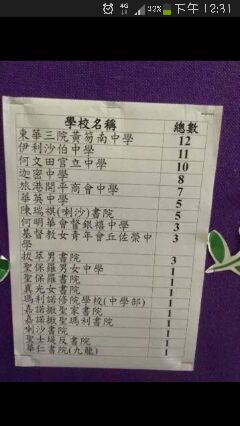 4G 92% 下午 12:31
學校名稱 總數
東華三院黃笏南中學 12
伊利沙伯中學 11
何文田官立中學 10
迦密中學 8
旅港開平商會中學 7
華英中學 5
陳瑞祺(喇沙)書院 5
何明華會督銀禧中學 3
基督教女青年會丘佐榮中 3
學
拔萃男書院 3
聖保羅男女中學 1
聖保羅書院 1
真光女書院 1
瑪利諾修院學校(中學部) 1
嘉諾撒聖家書院 1
嘉諾撒聖瑪利書院 1
喇沙書院 1
聖士堤反書院 1
華仁書院(九龍) 1